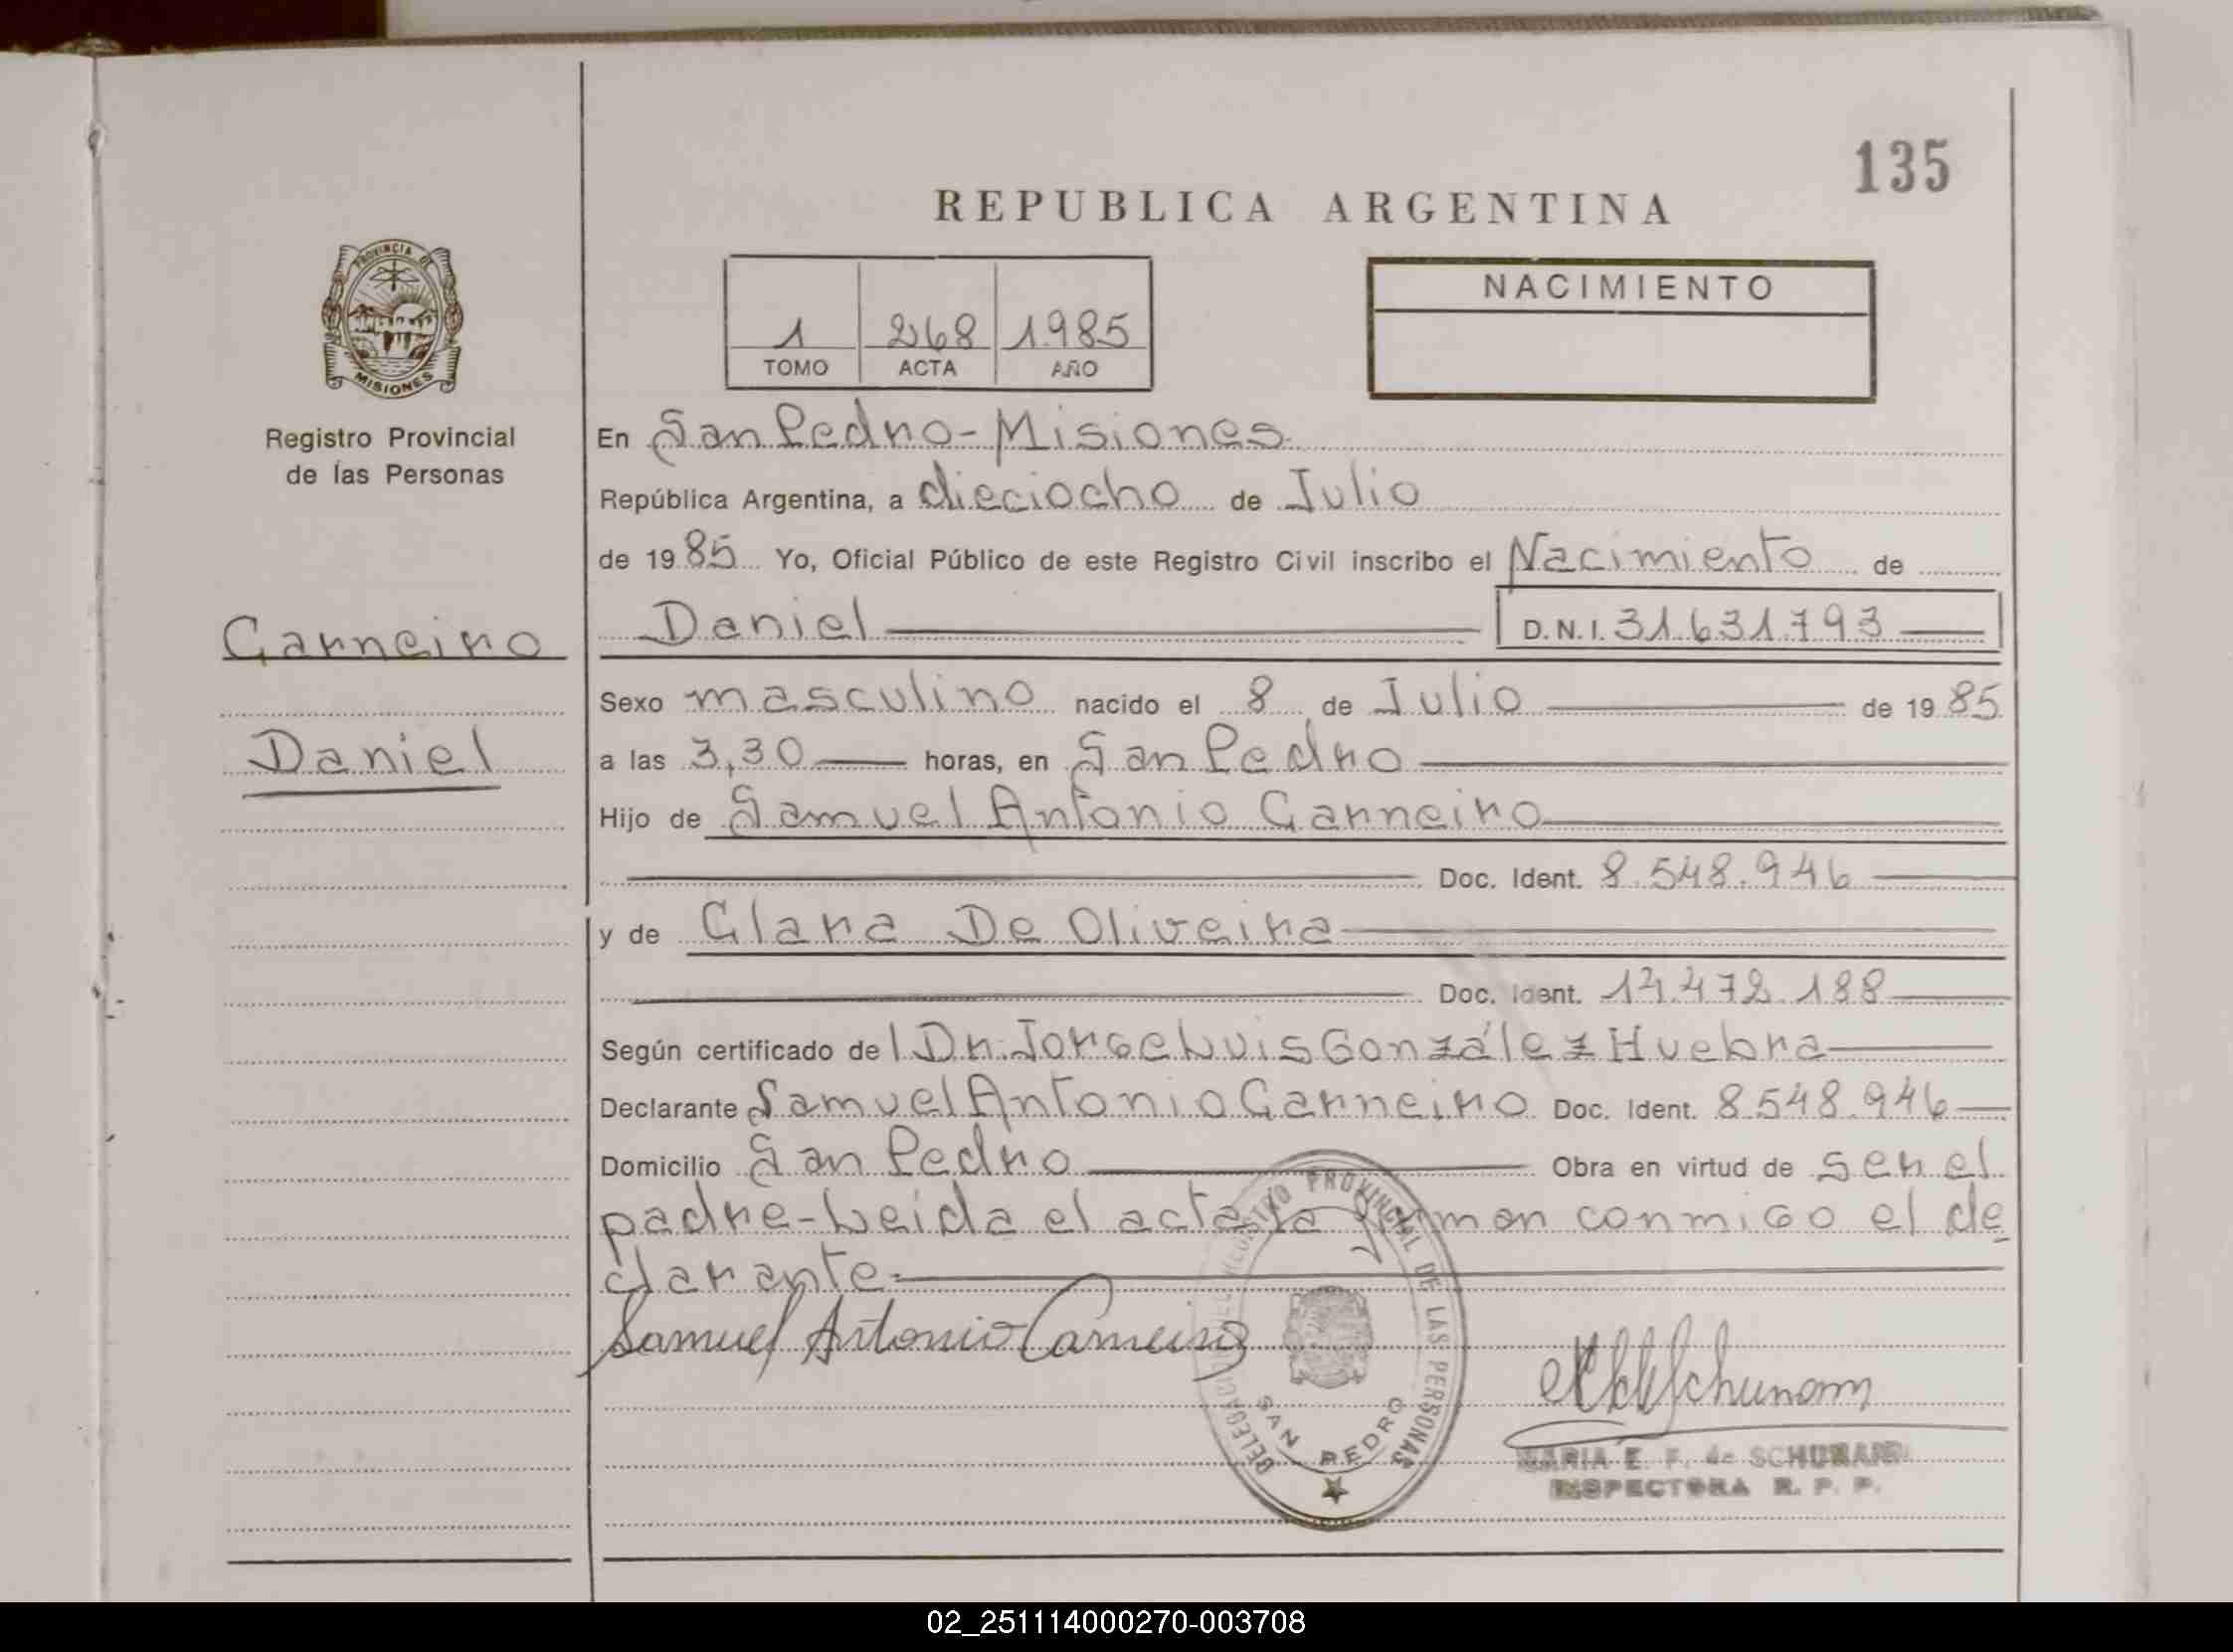 135
REPUBLICA ARGENTINA
PROVINCIA DE
MISIONES
Registro Provincial
de las Personas
1 268 1985
TOMO ACTA AÑO
NACIMIENTO
En San Pedro - Misiones
República Argentina, a dieciocho de Julio
de 1985 Yo, Oficial Público de este Registro Civil inscribo el Nacimiento de
Carneiro
Daniel D.N.I. 31.631.793
Daniel
Sexo masculino nacido el 8 de Julio de 1985
a las 3,30 horas, en San Pedro
Hijo de Samuel Antonio Carneiro
Doc. Ident. 8.548.946
y de Clara De Oliveira
Doc. Ident. 14.472.188
Según certificado del Dr. Jorge Luis González Huebra
Declarante Samuel Antonio Carneiro Doc. Ident. 8.548.946
Domicilio San Pedro Obra en virtud de ser el
padre - Leida el acta la firman conmigo el de
clarante.
Samuel Antonio Carneiro
DELEGACION REGISTRO PROVINCIAL DE LAS PERSONAS
SAN PEDRO
MARIA E. F. de SCHUNANN
INSPECTORA R. P. P.
02_251114000270-003708